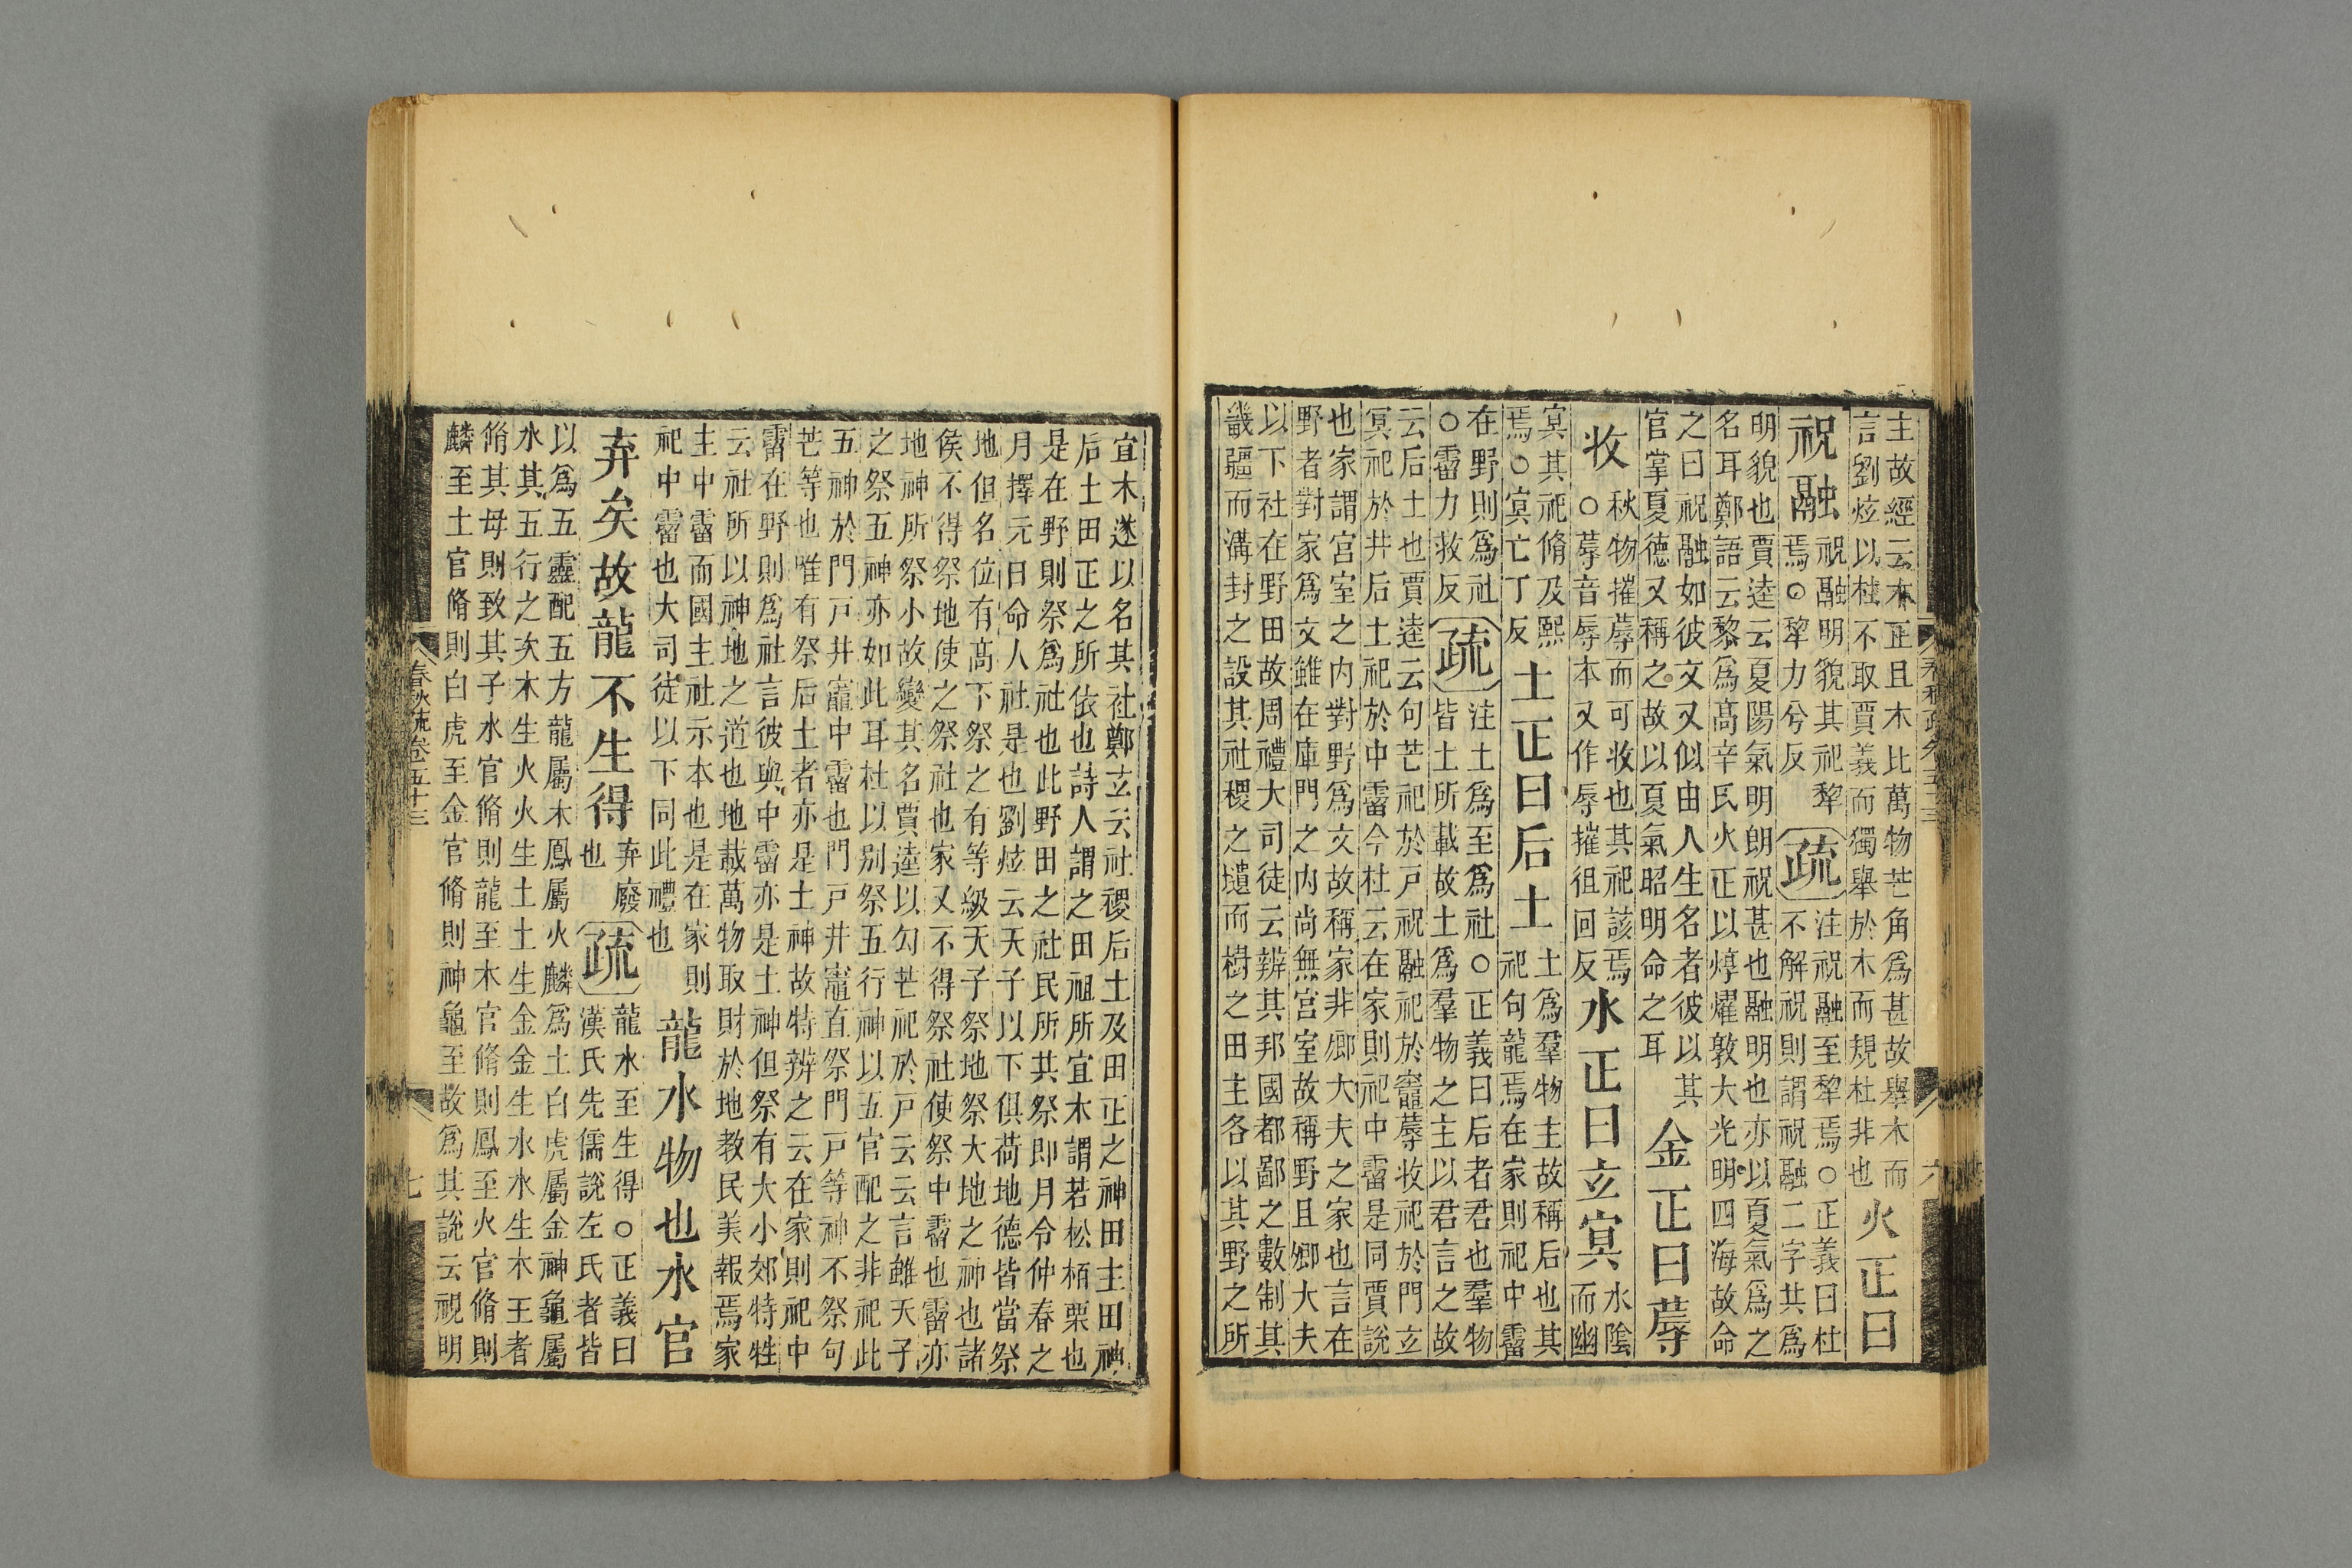 主故經云木正且木比萬物芒角爲甚故舉木而
言劉炫以杜不取賈義而獨舉於木而規杜非也
火正曰
祝融
祝融明貌其祀犂
焉○犂力兮反
疏
注祝融至犂焉○正義曰杜
不解祝則謂祝融二字共爲
明貌也賈逵云夏陽氣明朗祝甚也融明也亦以夏氣爲之
名耳鄭語云黎爲髙辛氏火正以焞燿敦大光明四海故命
之曰祝融如彼文又似由人生名者彼以其
官掌夏德又稱之故以夏氣昭明命之耳
金正曰蓐
收
秋物摧蓐而可收也其祀該焉
○蓐音辱本又作辱摧徂回反
水正曰玄冥
水陰
而幽
冥其祀脩及熙
焉○冥亡丁反
土正曰后土
土爲羣物主故稱后也其
祀句龍焉在家則祀中霤
在野則爲社
○霤力救反
疏
注土爲至爲社○正義曰后者君也羣物
皆土所載故土爲羣物之主以君言之故
云后土也賈逵云句芒祀於戸祝融祀於竈蓐收祀於門玄
冥祀於井后土祀於中霤今杜云在家則祀中霤是同賈說
也家謂宮室之内對野爲文故稱家非卿大夫之家也言在
野者對家爲文雖在庫門之内尚無宮室故稱野且卿大夫
以下社在野田故周禮大司徒云辨其邦國都鄙之數制其
畿疆而溝封之設其社稷之壝而樹之田主各以其野之所
宜木遂以名其社鄭玄云社稷后土及田正之神田主田神
后土田正之所依也詩人謂之田祖所宜木謂若松栢栗也
是在野則祭爲社也此野田之社民所共祭即月令仲春之
月擇元日命人社是也劉炫云天子以下俱荷地德皆當祭
地但名位有髙下祭之有等級天子祭地祭大地之神也諸
侯不得祭地使之祭社也家又不得祭社使祭中霤也霤亦
地神所祭小故變其名賈逵以句芒祀於戸云云言雖天子
之祭五神亦如此耳杜以别祭五行神以五官配之非祀此
五神於門戸井竈中霤也門戸井竈直祭門戸等神不祭句
芒等也唯有祭后土者亦是土神故特辨之云在家則祀中
霤在野則爲社言彼與中霤亦是土神但祭有大小郊特牲
云社所以神地之道也地載萬物取財於地教民美報焉家
主中霤而國主社示本也是在家則
祀中霤也大司徒以下同此禮也
龍水物也水官
弃矣故龍不生得
弃廢
也
疏
龍水至生得○正義曰
漢氏先儒說左氏者皆
以爲五靈配五方龍屬木鳳屬火麟爲土白虎屬金神龜屬
水其五行之次木生火火生土土生金金生水水生木王者
脩其母則致其子水官脩則龍至木官脩則鳳至火官脩則
麟至土官脩則白虎至金官脩則神龜至故爲其說云視明
春秋疏卷五十三
七
六